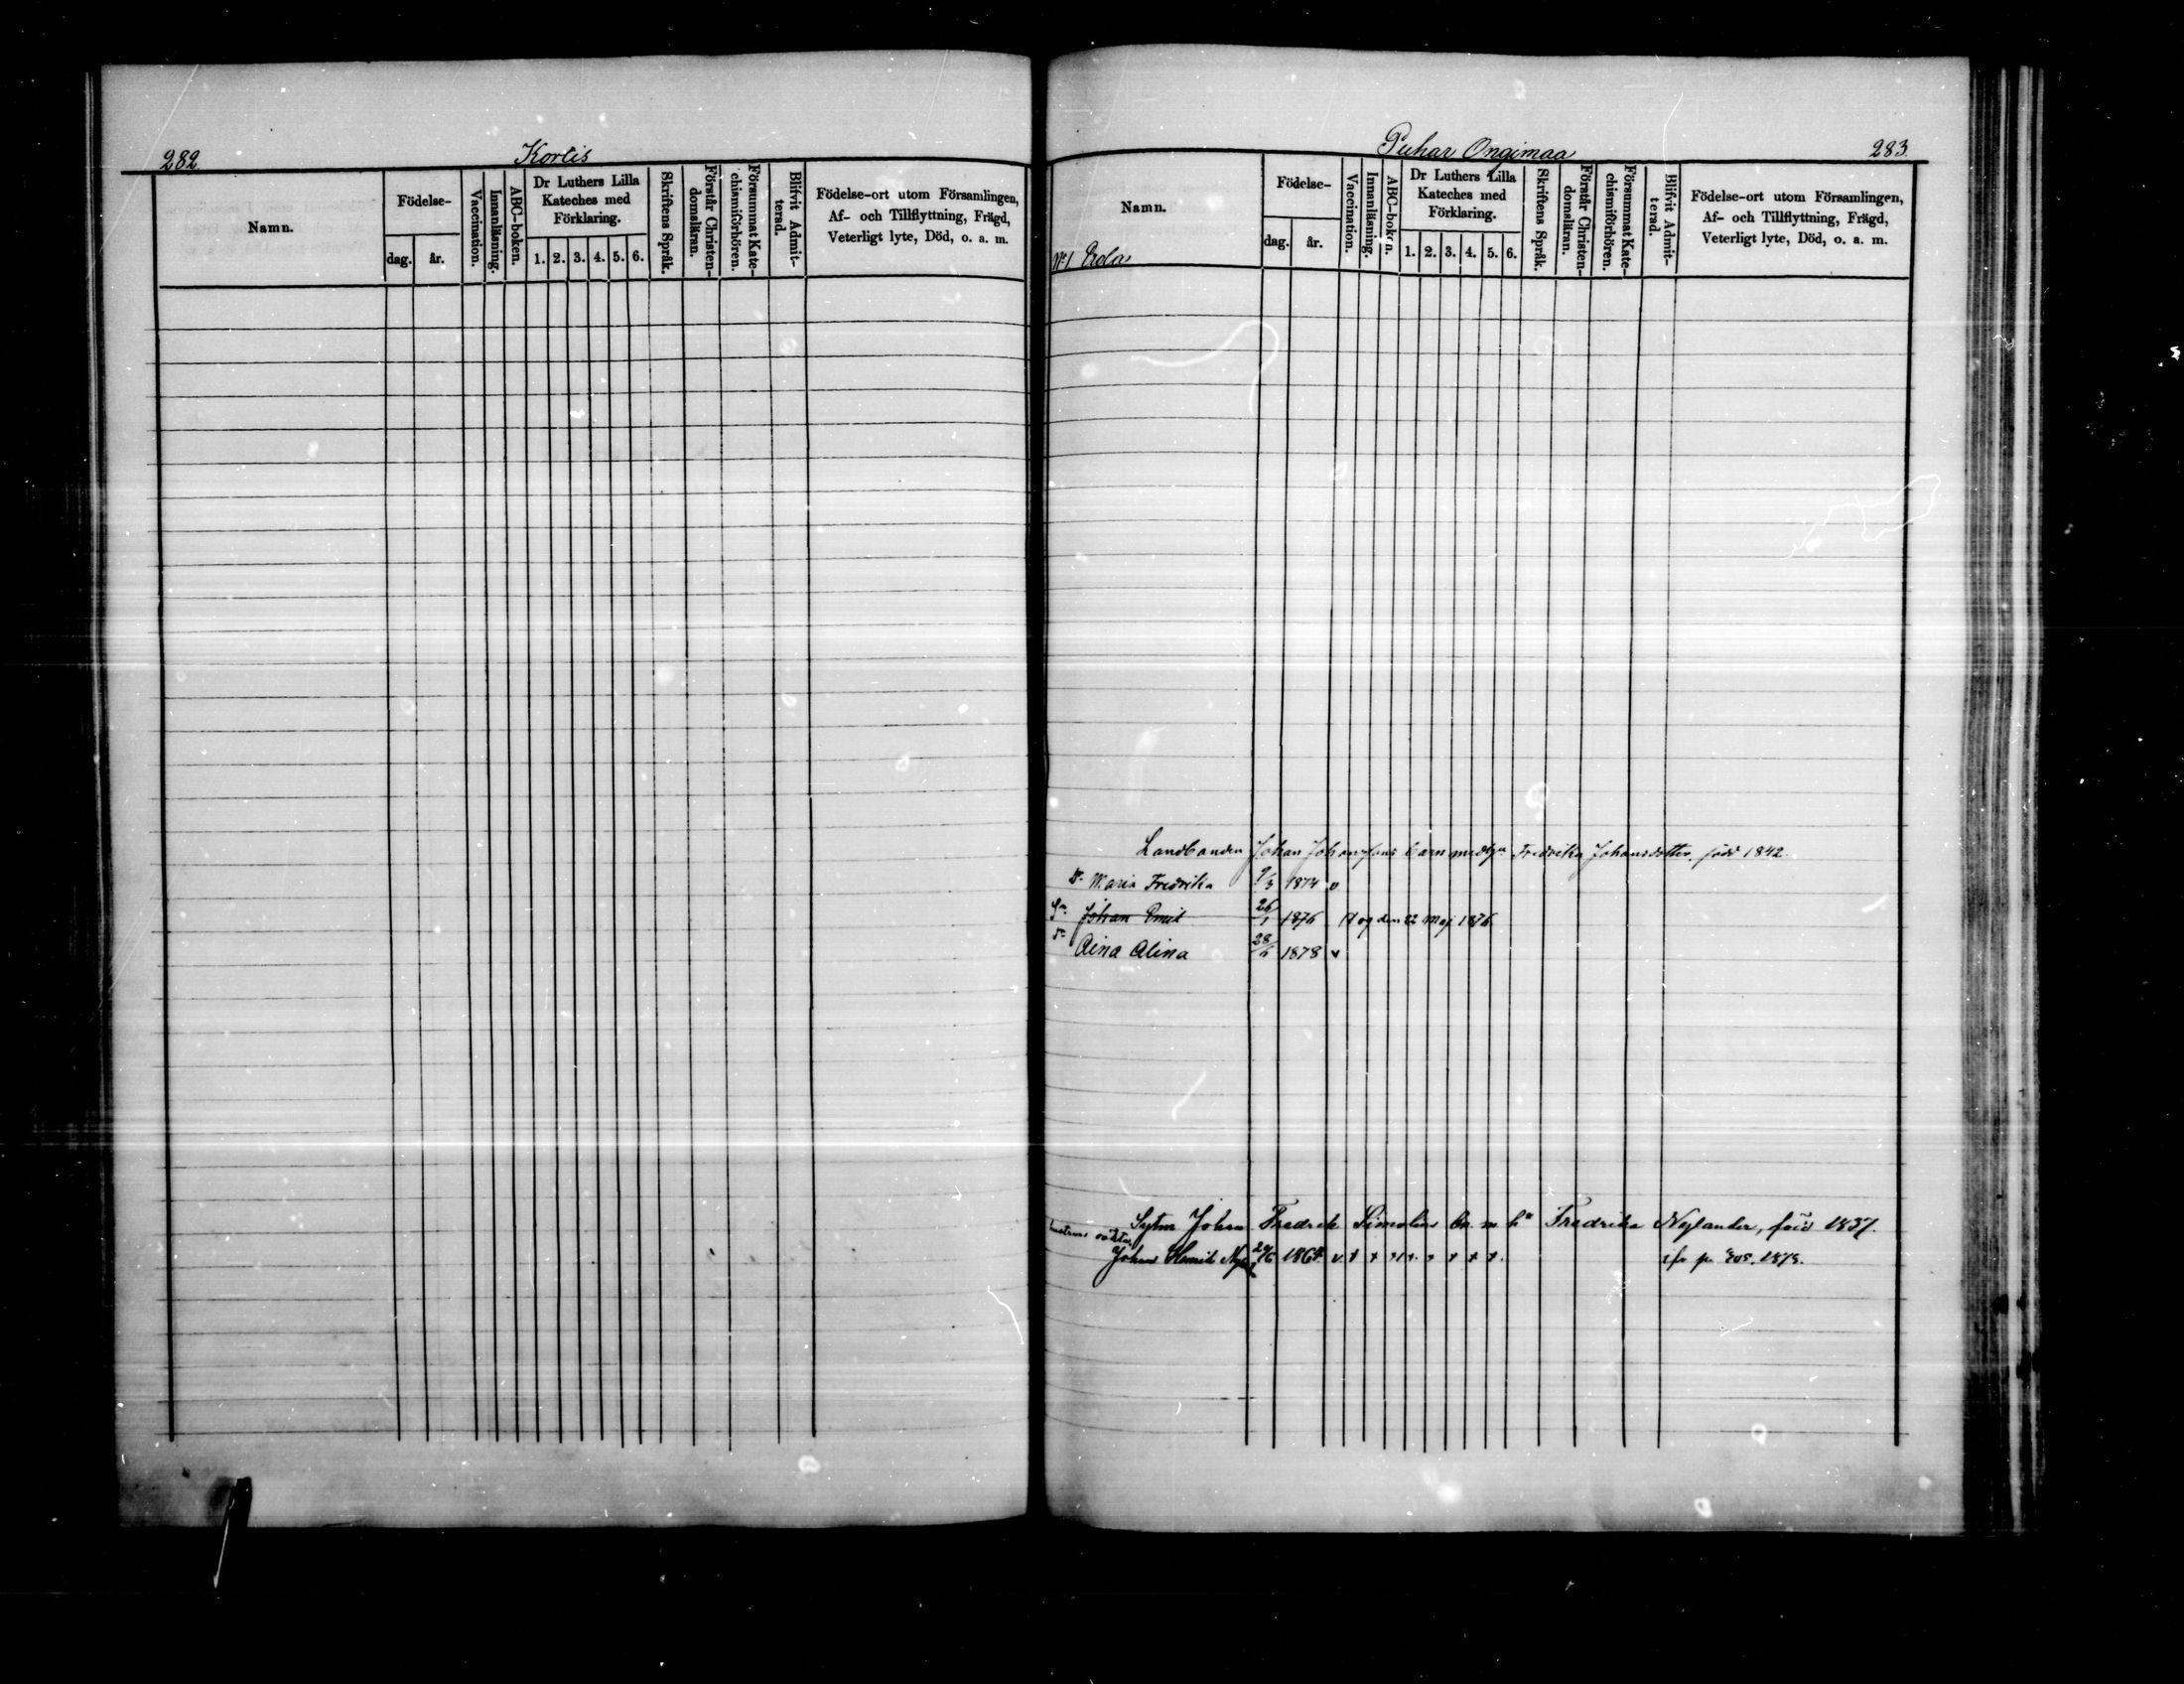 282.
Kortis
Namn.
Födelse-
dag.
år.
Vaccination.
Innanläsning.
ABC-boken.
Dr Luthers Lilla
Kateches med
Förklaring.
1. 2. 3. 4. 5. 6.
Skriftens Språk.
Förstår Christen-
domsläran.
Försummat Kate-
chismiförhören.
Blifvit Admit-
terad.
Födelse-ort utom Församlingen,
Af- och Tillflyttning, Frägd,
Veterligt lyte, Död, o. a. m.
Puhar Ongimaa
283.
Namn.
N:o 1. Erola
Födelse-
dag.
år.
Vaccination.
Innanläsning.
ABC-boken.
Dr Luthers Lilla
Kateches med
Förklaring.
1. 2. 3. 4. 5. 6.
Skriftens Språk.
Förstår Christen-
domsläran.
Försummat Kate-
chismiförhören.
Blifvit Admit-
terad.
Födelse-ort utom Församlingen,
Af- och Tillflyttning, Frägd,
Veterligt lyte, Död, o. a. m.
Landbonden Johan Johanssons barn med Fredrika Johansdotter född 1842.
Dr. Maria Fredrika 9/3 1874 v
Sn Johan Emil 26/1 1876 dog den 22 Maj 1876
Dr Aina Alina 28/5 1878 v
Sytn. Johan Fredrik Simolins bn. m. h Fredrika Nylander, född 1837.
Johan Hemik 1864 v
1873.